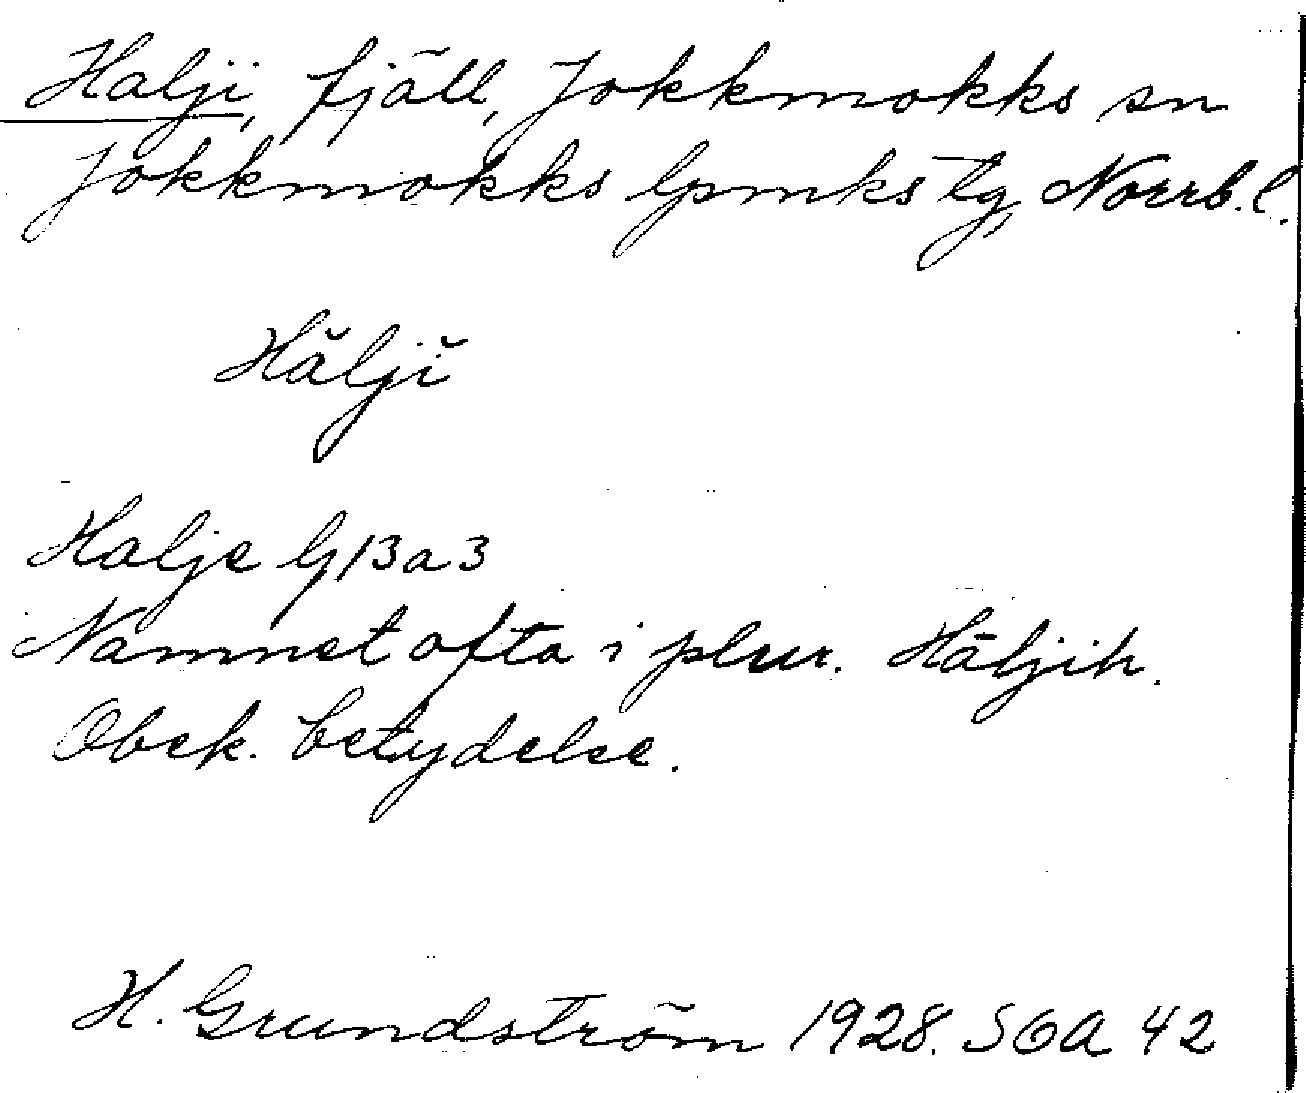 Halji, fjäll, Jokkmokks sn
Jokkmokks lpmks tg, Norrb. l.
Hălјĭ
Halje G13a3
Namnet ofta i plur. Hāljih.
Obek. betydelse.
H. Grundström 1928. SOA 42